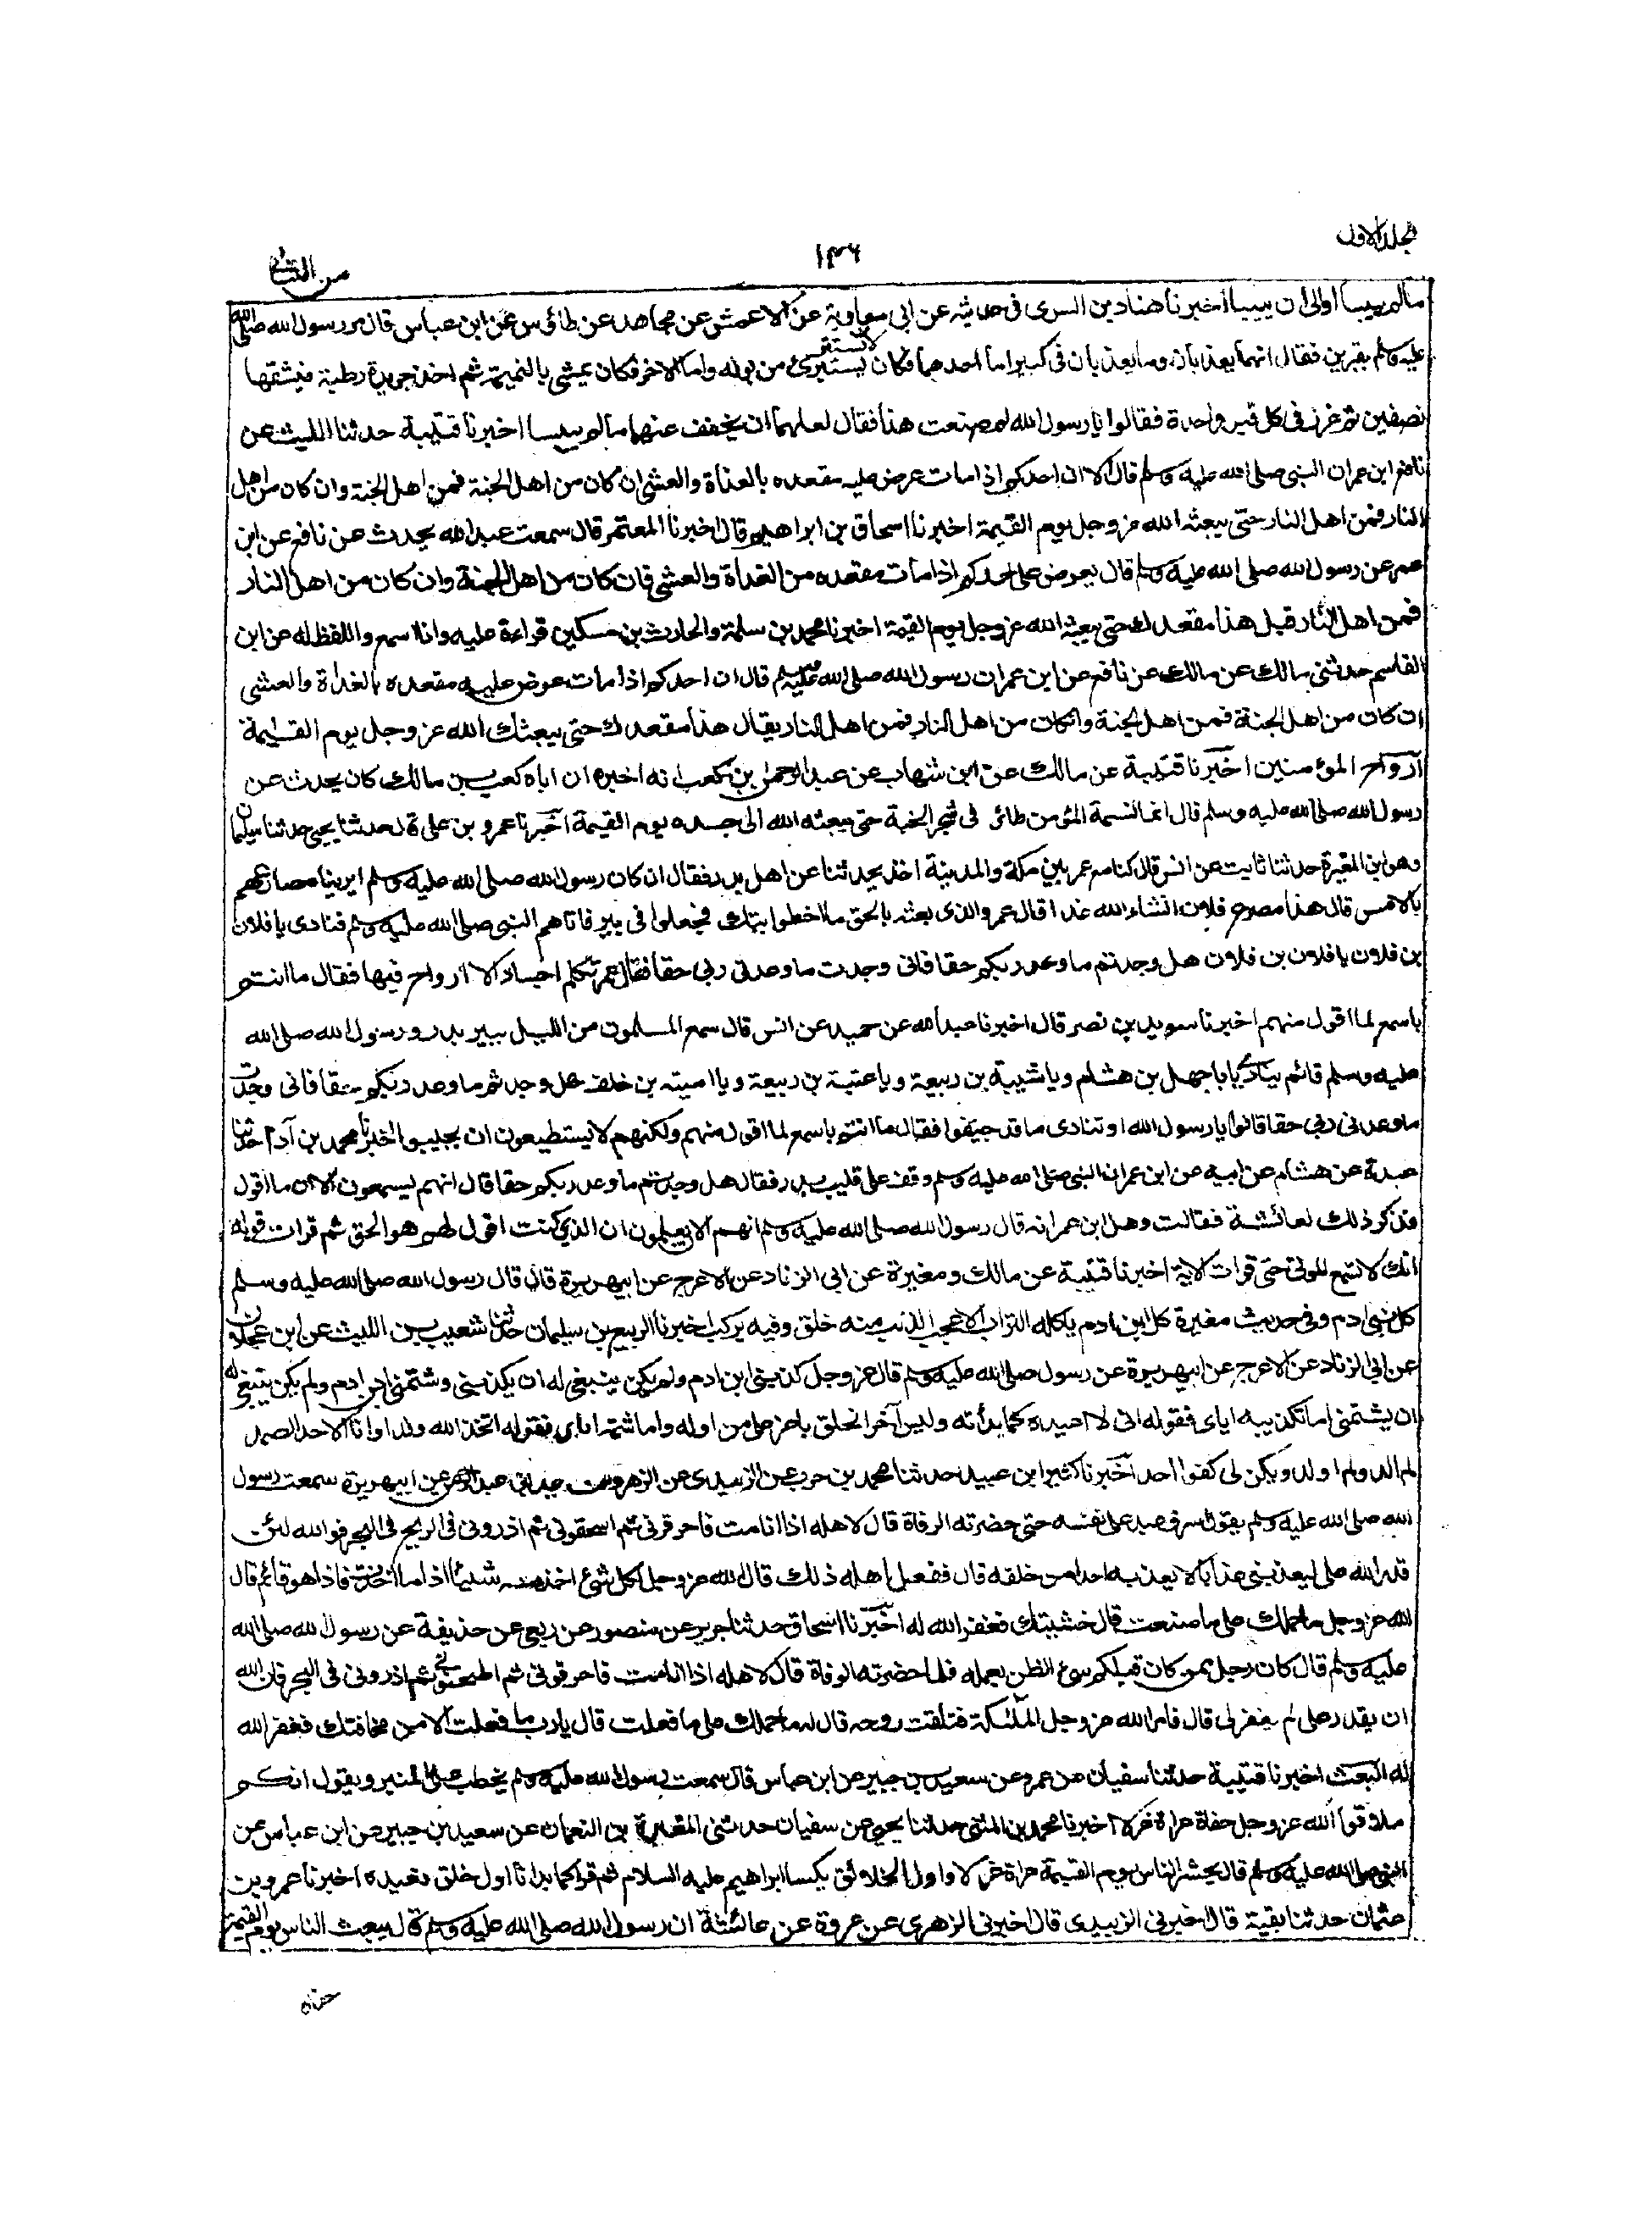 المجلد الاول
۱۴۶
من النسائى
مالم ييبسا اوالى ان ييبسا اخبرنا هناد بن السرى فى حديثه عن ابى معاوية عن الاعمش عن مجاهد عن طاؤس عن ابن عباس قال مر رسول الله صلى الله
عليه وسلم بقبرين فقال انهما يعذبان وما يعذبان فى كبير اما احدهما فكان لا يستبرئ من بوله واما الاخر فكان يمشى بالنميمة ثم اخذ جريدة رطبة فشقها
نصفين ثم غرز فى كل قبر واحدة فقالوا يا رسول الله لم صنعت هذا فقال لعلهما ان يخفف عنهما مالم ييبسا اخبرنا قتيبة حدثنا الليث عن
نافع ابن عمر ان النبى صلى الله عليه وسلم قال الا ان احدكم اذا مات عرض عليه مقعده بالغداة والعشى ان كان من اهل الجنة فمن اهل الجنة وان كان من اهل
النار فمن اهل النار حتى يبعثه الله عز وجل يوم القيمة اخبرنا اسحاق بن ابراهيم قال اخبرنا المعتمر قال سمعت عبيد الله يحدث عن نافع عن ابن
عمر عن رسول الله صلى الله عليه وسلم قال يعرض على احدكم اذا مات مقعده من الغداة والعشى فان كان من اهل الجنة وان كان من اهل النار
فمن اهل النار قيل هذا مقعدك حتى يبعثه الله عز وجل يوم القيمة اخبرنا محمد بن سلمة والحارث بن مسكين قراءة عليه وانا اسمع واللفظ له عن ابن
القاسم حدثنى مالك عن مالك عن نافع عن ابن عمر ان رسول الله صلى الله عليه وسلم قال ان احدكم اذا مات عرض عليه مقعده بالغداة والعشى
ان كان من اهل الجنة فمن اهل الجنة وان كان من اهل النار فمن اهل النار يقال هذا مقعدك حتى يبعثك الله عز وجل يوم القيمة
ارواح المؤمنين اخبرنا قتيبة عن مالك عن ابن شهاب عن عبد الرحمن بن كعب انه اخبره ان اباه كعب بن مالك كان يحدث عن
رسول الله صلى الله عليه وسلم قال انما نسمة المؤمن طائر فى شجر الجنة حتى يبعثه الله الى جسده يوم القيمة اخبرنا عمرو بن على حدثنا يحيى حدثنا سليمان
وهو ابن المغيرة حدثنا ثابت عن انس قال كنا مع عمر بين مكة والمدينة اخذ يحدثنا عن اهل بدر فقال ان كان رسول الله صلى الله عليه وسلم ليرينا مصارعهم
بالامس قال هذا مصرع فلان انشاء الله غدا قال عمر والذى بعثه بالحق ما اخطوا تيك فجعلوا فى بير فاتاهم النبى صلى الله عليه وسلم فنادى يا فلان
بن فلان يا فلان بن فلان هل وجدتم ما وعد ربكم حقا فانى وجدت ما وعدنى ربى حقا فقال عمر تكلم اجسادا لا ارواح فيها فقال ما انتم
باسمع لما اقول منهم اخبرنا سويد بن نصر قال اخبرنا عبد الله عن حميد عن انس قال سمع المسلمون من الليل ببير بدر ورسول الله صلى الله
عليه وسلم قائم ينادى يا ابا جهل بن هشام ويا شيبة بن ربيعة ويا عتبة بن ربيعة ويا امية بن خلف هل وجدتم ما وعد ربكم حقا فانى وجدت
ما وعدنى ربى حقا قالوا يا رسول الله او تنادى ما قد جيفوا فقال ما انتم باسمع لما اقول منهم ولكنهم لا يستطيعون ان يجيبوا اخبرنا محمد بن آدم حدثنا
عبدة عن هشام عن ابيه عن ابن عمر ان النبى صلى الله عليه وسلم وقف على قليب بدر فقال هل وجدتم ما وعد ربكم حقا قال انهم ليسمعون الان ما اقول
فذكر ذلك لعائشة فقالت وهل ابن عمر انه قال رسول الله صلى الله عليه وسلم انهم الان يعلمون ان الذى كنت اقول لهم هو الحق ثم قرات قوله
انك لا تسمع الموتى حتى قرات الاية اخبرنا قتيبة عن مالك ومغيرة عن ابى الزناد عن الاعرج عن ابيهريرة قال قال رسول الله صلى الله عليه وسلم
كل بنى ادم وفى حديث مغيرة كل ابن ادم ياكله التراب الا عجب الذنب منه خلق وفيه يركب اخبرنا الربيع بن سليمان حدثنا شعيب بن الليث عن ابن عجلان
عن ابى الزناد عن الاعرج عن ابيهريرة عن رسول صلى الله عليه وسلم قال قال عز وجل كذبنى ابن ادم ولم يكن ينبغى له ان يكذبنى وشتمنى ابن ادم ولم يكن ينبغى له
ان يشتمنى اما تكذيبه اياى فقوله انى لا اعيده كما بدأته وليس آخر الخلق باعز على من اوله واما شتمه اياى فقوله اتخذ الله ولدا وانا الاحد الصمد
لم الد ولم اولد ويكن لى كفوا احد اخبرنا كثير ابن عبيد حدثنا محمد بن حرب عن الزبيدى عن الزهرى عن حميد بن عبد الرحمن عن ابيهريرة سمعت رسول
الله صلى الله عليه وسلم يقول اسرف عبد على نفسه حتى حضرته الوفاة قال لاهله اذا انا مت فاحرقونى ثم اسحقونى ثم اذرونى فى الريح فى البحر فوالله لئن
قدر الله على ليعذبنى عذابا لا يعذبه احدا من خلقه قال ففعل اهله ذلك قال الله عز وجل لكل شئ اخذ منه شيئا اد ما اخذت فاذا هو قائم قال
الله عز وجل ما حملك على ما صنعت قال خشيتك فغفر الله له اخبرنا اسحاق حدثنا جرير عن منصور عن ربعى عن حذيفة عن رسول الله صلى الله
عليه وسلم قال كان رجل ممن كان قبلكم سئ الظن بعمله فلما حضرته الوفاة قال لاهله اذا انا مت فاحرقونى ثم اطحنونى ثم اذرونى فى البحر فان الله
ان يقدر على لم يغفر لى قال فامر الله عز وجل الملئكة فتلقت روحه قال له ما حملك على ما فعلت قال يا رب ما فعلت الا من مخافتك فغفر الله
له البعث اخبرنا قتيبة حدثنا سفيان عن عمرو عن سعيد بن جبير عن ابن عباس قال سمعت رسول الله صلى الله عليه وسلم يخطب على المنبر ويقول انكم
ملاقوا الله عز وجل حفاة عراة غرلا اخبرنا محمد بن المثنى حدثنا يحيى عن سفيان حدثنى المغيرة بن النعمان عن سعيد بن جبير عن ابن عباس عن
النبى صلى الله عليه وسلم قال يحشر الناس يوم القيمة عراة غرلا واول الخلائق يكسا ابراهيم عليه السلام ثم قرا كما بدانا اول خلق نعيده اخبرنا عمرو بن
عثمان حدثنا بقية قال اخبرنى الزبيدى قال اخبرنى الزهرى عن عروة عن عائشة ان رسول الله صلى الله عليه وسلم قال يبعث الناس يوم القيمة
حفاة